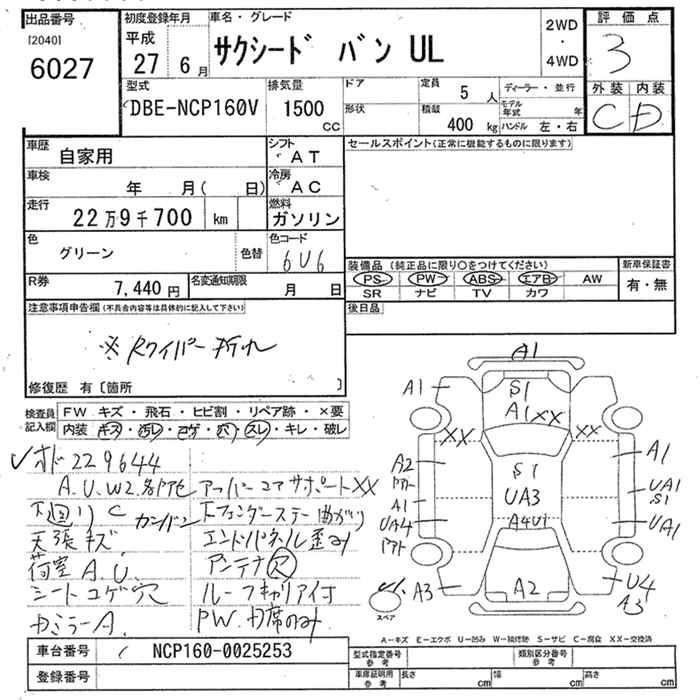 出品番号
[2040]
6027
初度登録年月
平成
27 6月
車名・グレード
サクシード バン UL
2WD
・
4WD
評価点
3
外装 内装
C D
型式
DBE-NCP160V
排気量
1500
CC
ドア
形状
定員
5 人
積載
400 kg
ディーラー・並行
モデル年式 年
ハンドル 左・右
車歴
自家用
シフト
AT
車検
年 月( 日)
冷房
AC
走行
22万9千700 km
燃料
ガソリン
色
グリーン
色替
色コード
6U6
R券
7,440円
名変通知期限
月 日
セールスポイント(正常に機能するものに限ります)
装備品 (純正品に限り○をつけてください)
PS PW ABS エアB AW
SR ナビ TV カワ
新車保証書
有・無
後日品
注意事項申告欄(不具合内容等は具体的に記入して下さい)
※ Rワイパー折れ
修復歴 有〔箇所 〕
検査員
記入欄
FW キズ・飛石・ヒビ割・リペア跡・×要
内装 キズ・汚レ・コゲ・穴・スレ・キレ・破レ
オド229644
A.U.W2.各部色
下回りC カンバン
天張キズ
荷室A.U.
シートコゲ穴
アッパーコアサポートXX
Fフェンダーステー曲がり
エンドパネル歪み
アンテナ穴
ルーフキャリア付
PW.力席のみ
A1
A1 S1
A1 XX
XX XX
A2 S1 A1
UA3 UA1
S1
A1
UA4 A4U1 UA1
A3 A2 U4
A3
スペア
A-キズ E-エクボ U-凹み W-補修跡 S-サビ C-腐食 XX-交換済
車台番号
NCP160-0025253
登録番号
型式指定番号
参考
類別区分番号
参考
車庫証明用
参考
長さ cm 幅 cm 高さ cm